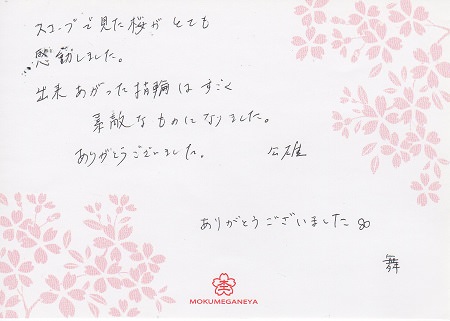 スコープで見た桜がとても
感動しました。
出来あがった指輪はすごく
素敵なものになりました。
ありがとうございました。 公雄
ありがとうございました
舞
MOKUMEGANEYA